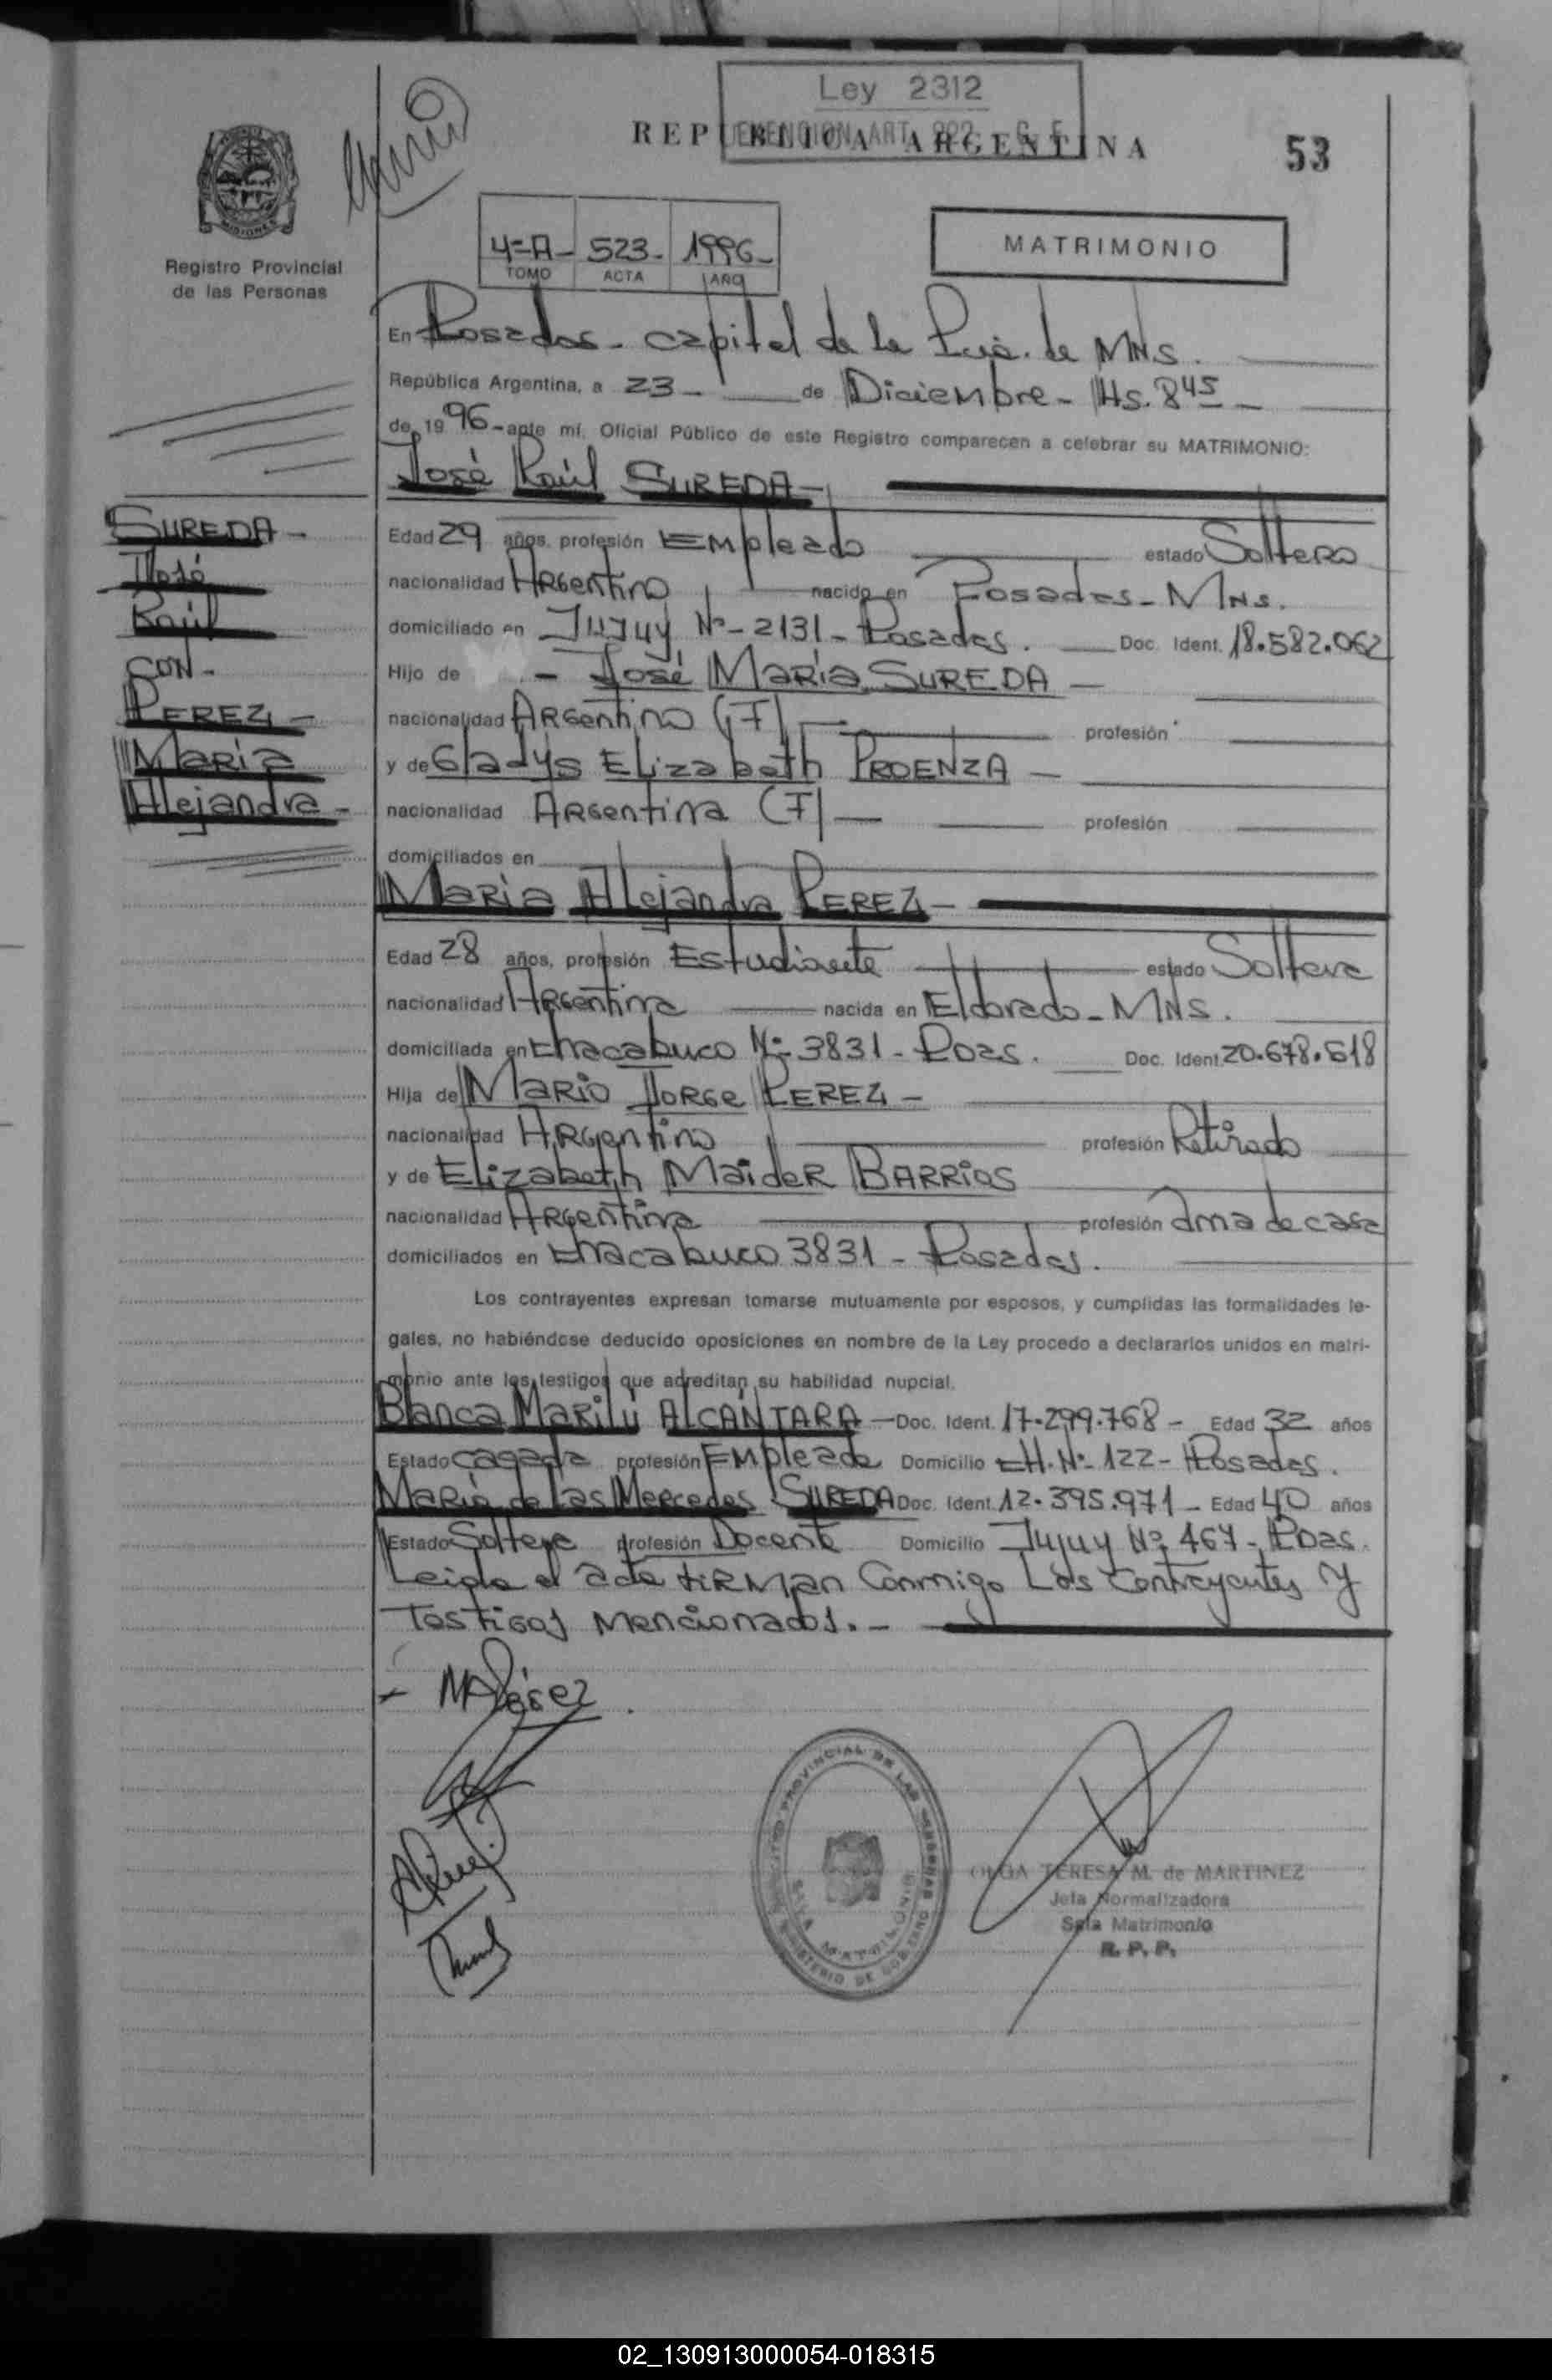 Ley 2312
REPUBLICA ARGENTINA
53
MISIONES
Registro Provincial
de las Personas
4=A- 523- 1996-
TOMO ACTA AÑO
MATRIMONIO
En Posadas - capital de la Pcia. de MNS.
República Argentina, a 23 - de Diciembre - Hs. 8 45 -
de 19 96 - ante mí, Oficial Público de este Registro comparecen a celebrar su MATRIMONIO:
José Raúl SUREDA -
SUREDA -
José
Raúl
CON -
PEREZ -
María
Alejandra -
Edad 29 años, profesión Empleado estado Soltero
nacionalidad Argentino nacido en Posadas - Mns.
domiciliado en Jujuy Nº - 2131 - Posadas. Doc. Ident. 18.582.062
Hijo de - José María SUREDA -
nacionalidad Argentino (F) profesión
y de Gladys Elizabeth PROENZA -
nacionalidad Argentina (F) - profesión
domiciliados en
María Alejandra PEREZ -
Edad 28 años, profesión Estudiante estado Soltera
nacionalidad Argentina nacida en Eldorado - MNS.
domiciliada en Chacabuco Nº 3831 - Pdas. Doc. Ident. 20.678.618
Hija de Mario Jorge PEREZ -
nacionalidad Argentino profesión Retirado
y de Elizabeth Maider BARRIOS
nacionalidad Argentina profesión ama de casa
domiciliados en Chacabuco 3831 - Posadas.
Los contrayentes expresan tomarse mutuamente por esposos, y cumplidas las formalidades le-
gales, no habiéndose deducido oposiciones en nombre de la Ley procedo a declararlos unidos en matri-
monio ante los testigos que acreditan su habilidad nupcial.
Blanca Marilú ALCÁNTARA - Doc. Ident. 17.299.768 - Edad 32 años
Estado casada profesión Empleada Domicilio CH. Nº 122 - Posadas.
María de las Mercedes SUREDA Doc. Ident. 12.395.971 - Edad 40 años
Estado Soltera profesión Docente Domicilio Jujuy Nº 467 - Pdas.
Leida el acta firman conmigo Los Contrayentes y
Testigos Mencionados. -
MAPérez
OLGA TERESA M. de MARTINEZ
Jefa Normalizadora
Sala Matrimonio
R. P. P.
02_130913000054-018315